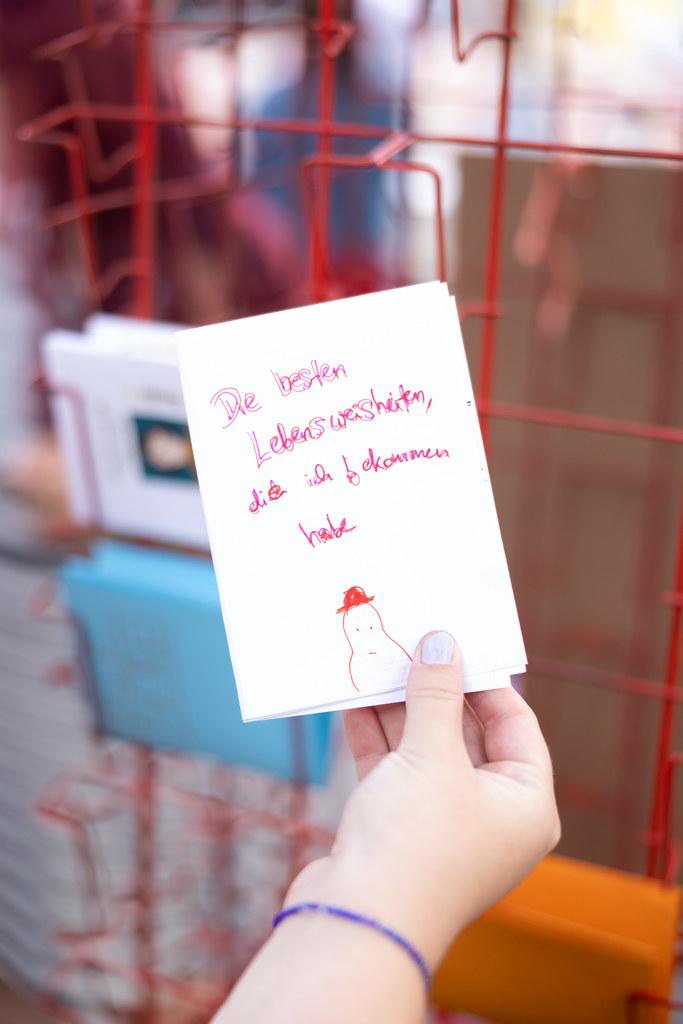 Die besten
Lebensweisheiten,
die ich bekommen
habe